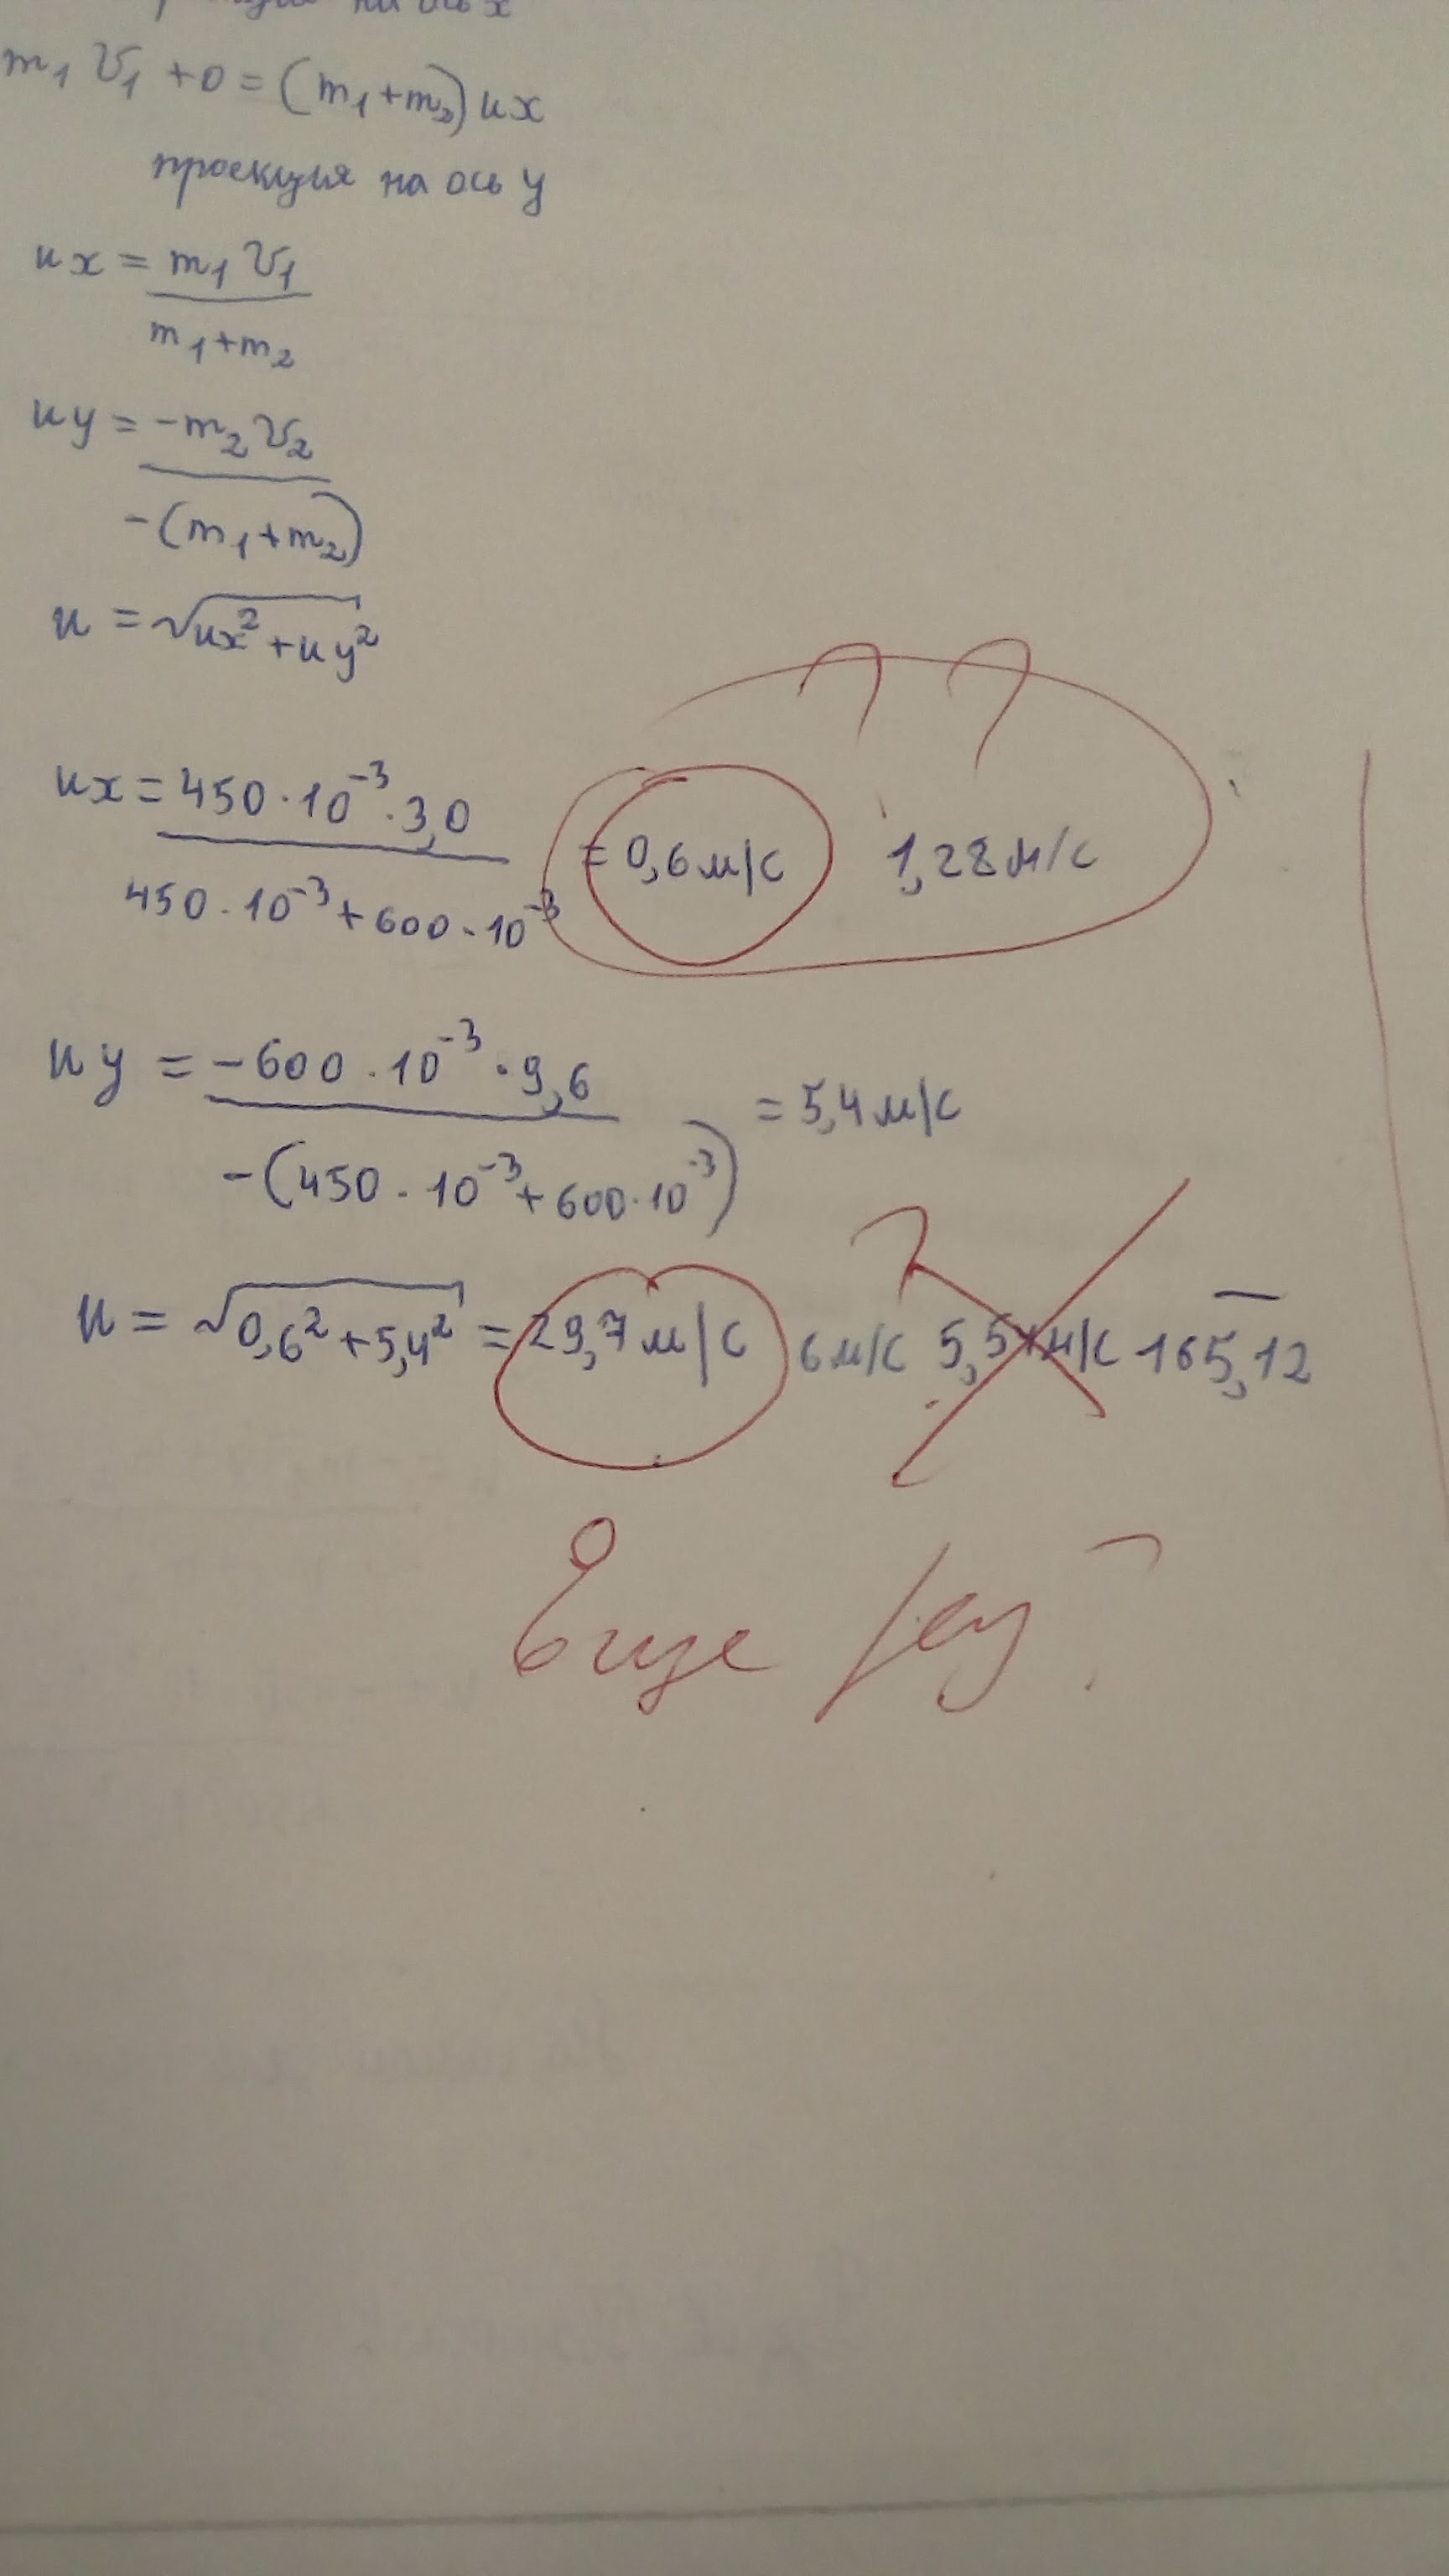 на ось x
m₁ v₁ + 0 = (m₁+m₂) ux
проекция на ось y
ux = m₁ v₁
m₁+m₂
uy = -m₂ v₂
-(m₁+m₂)
u = √ux² + uy²
ux = 450·10⁻³·3,0
450·10⁻³+600·10⁻³
= 0,6 м/с 1,28 м/с
??
uy = -600·10⁻³·9,6
-(450·10⁻³+600·10⁻³)
= 5,4 м/с
u = √0,6²+5,4² = 29,7 м/с 6 м/с 5,54 м/с 165,12
?
Еще ?